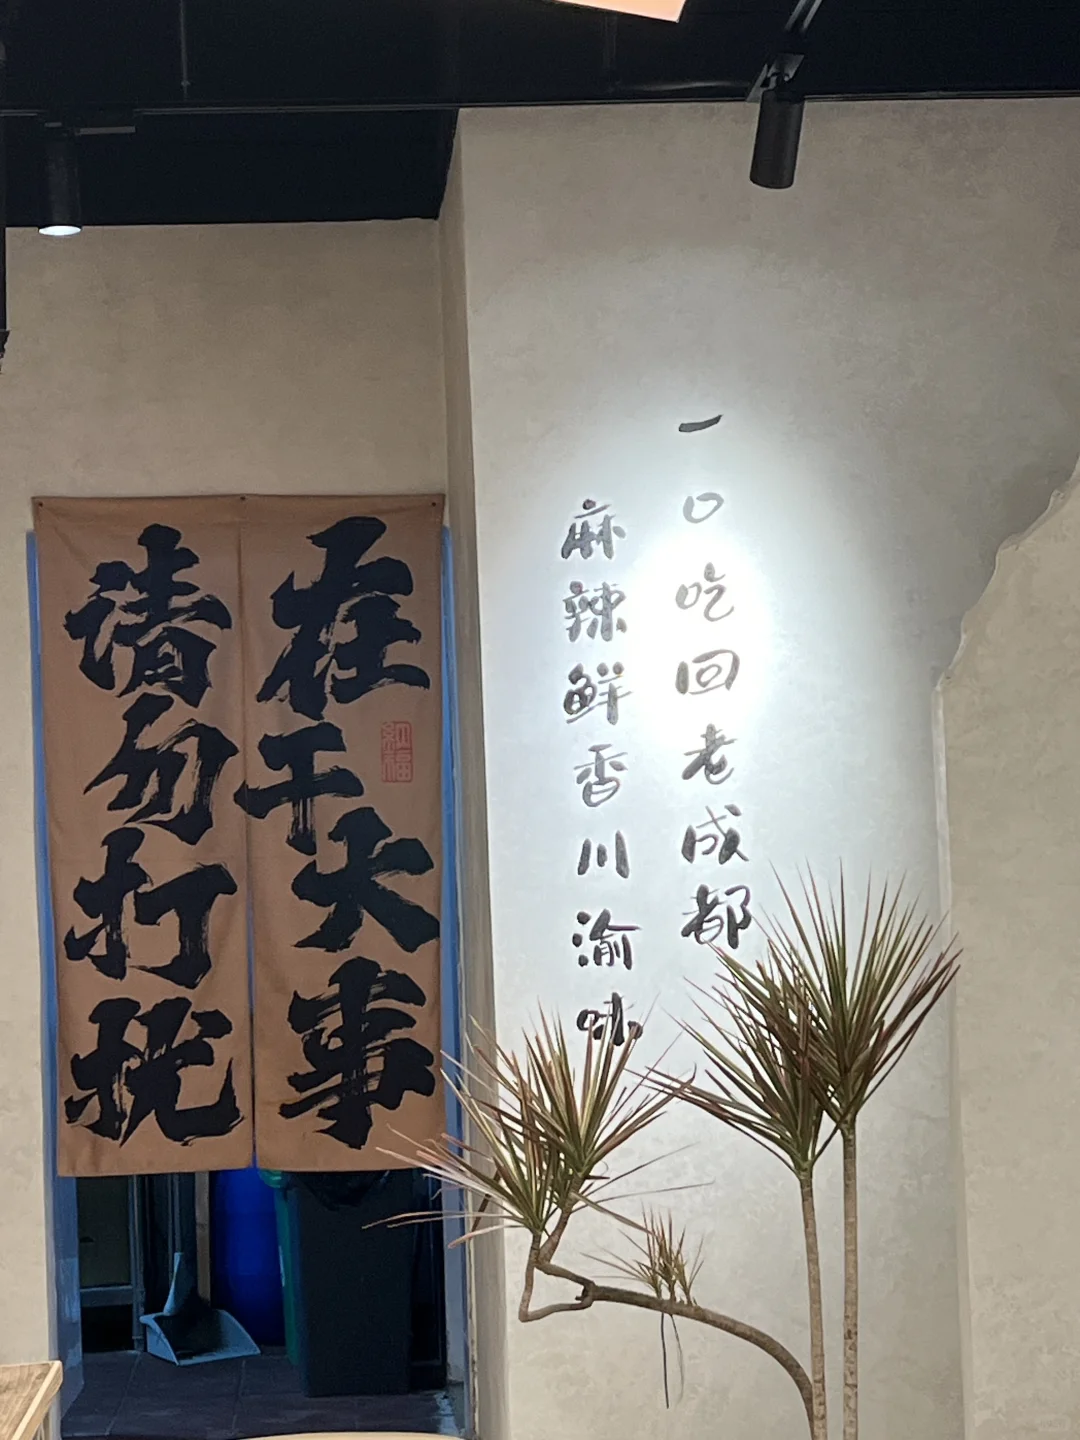 在干大事
请勿打扰
纳福
一口吃回老成都
麻辣鲜香川渝味